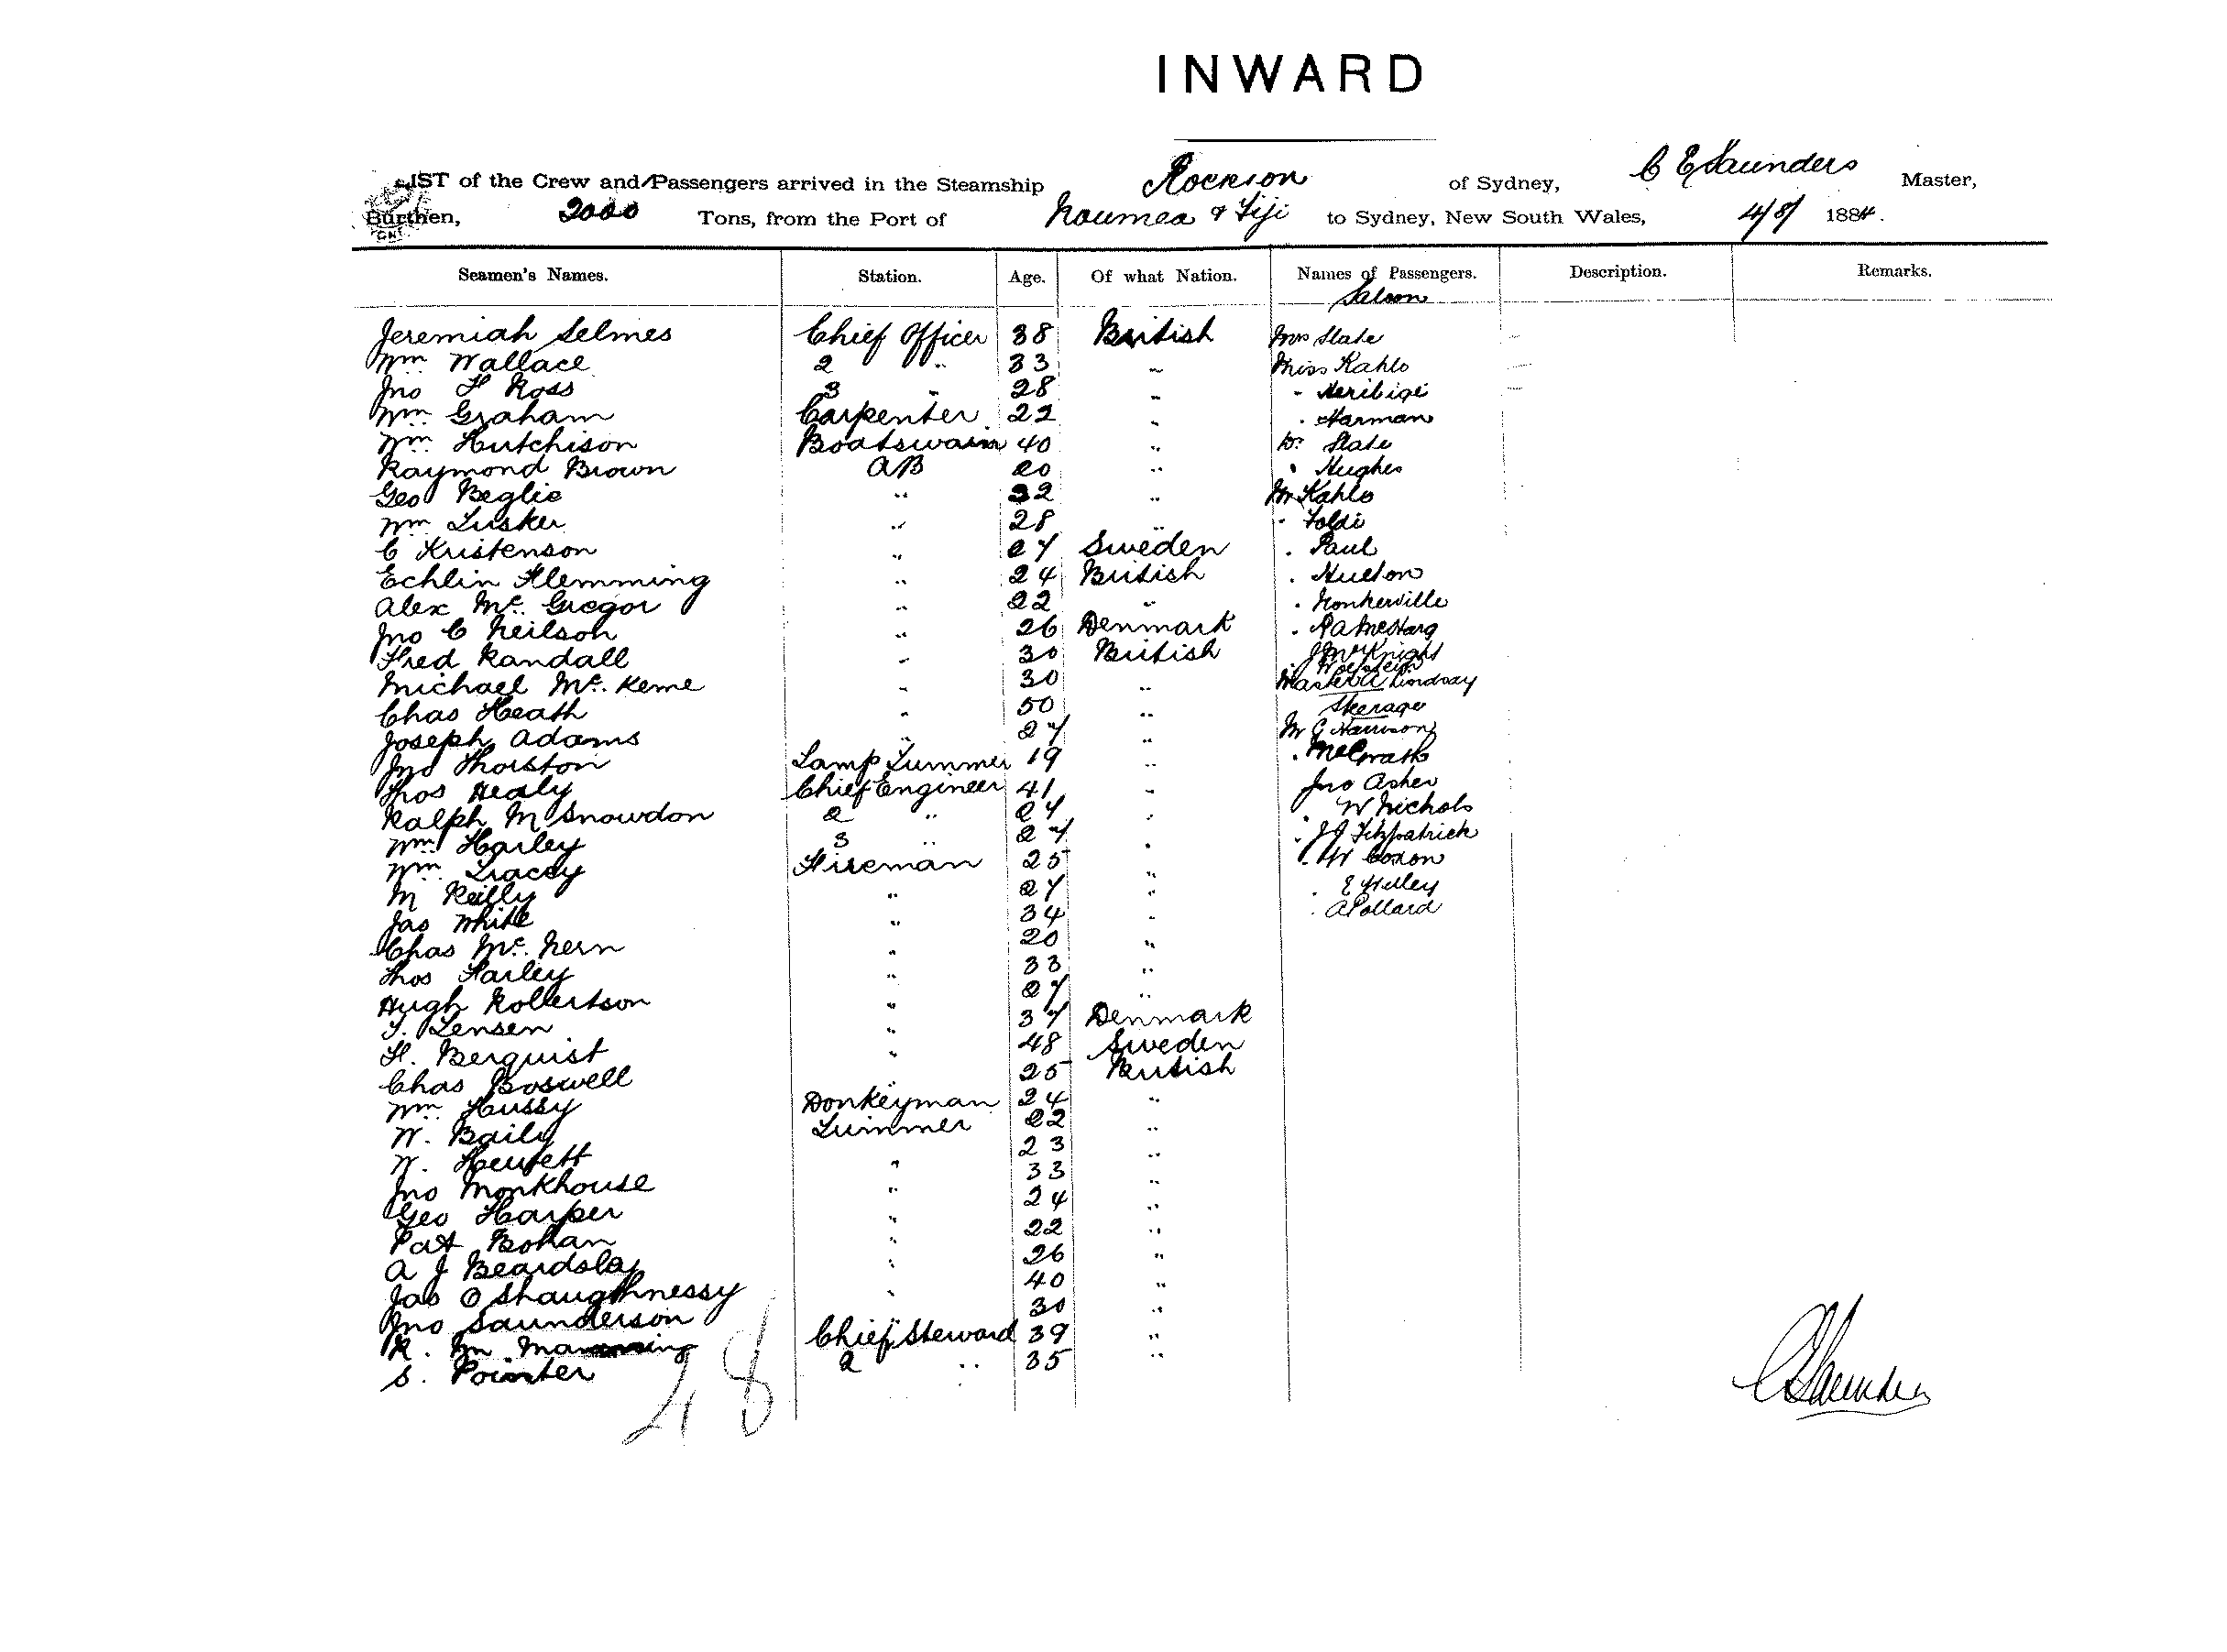 INWARD
LIST of the Crew and Passengers arrived in the Steamship Rockton of Sydney, C E Saunders Master,
Burthen, 2000 Tons, from the Port of Noumea & Fiji to Sydney, New South Wales, 4/8/ 1884.
Seamen's Names. Station. Age. Of what Nation. Names of Passengers. Description. Remarks.
Saloon
Jeremiah Selmes Chief Officer 38 British Mrs Slate
Wm Wallace 2 " 33 " Miss Kahlo
Jno F Ross 3 " 28 "
Wm Graham Carpenter 22 " " Harman
Wm Hutchison Boatswain 40 " Dr Slate
Raymond Brown AB 20 " " Hughes
Geo Beglie " 32 " Mr Kahlo
Wm Lusker " 28 " "
C Kristenson " 27 Sweden " Paul
Echlin Flemming " 24 British " Hulton
Alex Mc Gregor " 22 "
Jno C Neilson " 26 Denmark "
Fred Randall " 30 British J McKnight
Michael Mc Keme " 30 " Master A Lindsay
Chas Heath " 50 " Steerage
Joseph Adams " 27 " Mr G Harrison
Jno Thorston Lamp Trimmer 19 " " McGrath
Thos Healy Chief Engineer 41 " Jno Asher
Ralph M Snowdon 2 " 27 " " W Nichols
Wm Harley 3 " 27 " " J J Fitzpatrick
Wm Tracey Fireman 25 " " W Coxon
M Reilly " 27 " " E Kelley
Jas White " 34 " " A Pollard
Chas Mc Nern " 20 "
Thos Farley " 33 "
Hugh Rollertson " 27 "
J. Lensen " 37 Denmark
H. Berquist " 48 Sweden
Chas Boswell " 25 British
Wm Hussy Donkeyman 24 "
W. Baily Trimmer 22 "
W. Hewett 23 "
Jno Monkhouse " 33 "
Geo Harper " 24 "
Pat Bohan " 22 "
A J Beardsley " 26 "
Jas O Shaughnessy " 40 "
Jno Saunderson " 30 "
R. Wm Manning Chief Steward 39 "
S. Pointer 2 " 35 "
48
C E Saunders